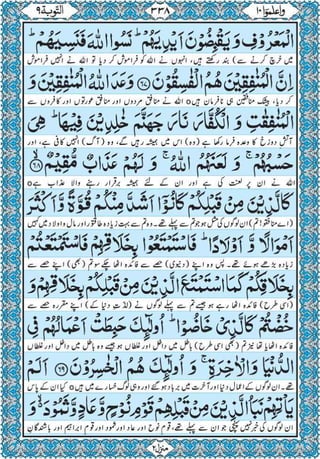 واعلموا ١٠ ٣٣٨ التوبة ٩
الْمَعْرُوْفِ وَيَقْبِضُوْنَ اَيْدِيَهُمْ ؕ نَسُوا اللّٰهَ فَنَسِيَهُمْ ؕ
میں خرچ کرنے سے) بند رکھتے ہیں، انہوں نے اللہ کو فراموش کر دیا تو اللہ نے انہیں فراموش
اِنَّ الْمُنٰفِقِيْنَ هُمُ الْفٰسِقُوْنَ ۝٦٧ وَعَدَ اللّٰهُ الْمُنٰفِقِيْنَ وَ
کر دیا، بیشک منافقین ہی نافرمان ہیں ۝ اللہ نے منافق مردوں اور منافق عورتوں اور کافروں سے
الْمُنٰفِقٰتِ وَالْكُفَّارَ نَارَ جَهَنَّمَ خٰلِدِيْنَ فِيْهَا ؕ هِيَ
آتش دوزخ کا وعدہ فرما رکھا ہے (وہ) اس میں ہمیشہ رہیں گے، وہ (آگ) انہیں کافی ہے، اور
حَسْبُهُمْ ۚ وَلَعَنَهُمُ اللّٰهُ ۚ وَلَهُمْ عَذَابٌ مُّقِيْمٌ ۝٦٨
اللہ نے ان پر لعنت کی ہے اور ان کے لئے ہمیشہ برقرار رہنے والا عذاب ہے ۝
كَالَّذِيْنَ مِنْ قَبْلِكُمْ كَانُوْۤا اَشَدَّ مِنْكُمْ قُوَّةً وَّ اَكْثَرَ
(اے منافقو! تم) ان لوگوں کی مثل ہو جو تم سے پہلے تھے۔ وہ تم سے بہت زیادہ طاقتور اور مال و اولاد میں کہیں
اَمْوَالًا وَّ اَوْلَادًا ؕ فَاسْتَمْتَعُوْا بِخَلَاقِهِمْ فَاسْتَمْتَعْتُمْ
زیادہ بڑھے ہوئے تھے۔ پس وہ اپنے (دنیوی) حصے سے فائدہ اٹھا چکے سو تم (بھی) اپنے حصے سے
بِخَلَاقِكُمْ كَمَا اسْتَمْتَعَ الَّذِيْنَ مِنْ قَبْلِكُمْ بِخَلَاقِهِمْ وَ
(اسی طرح) فائدہ اٹھا رہے ہو جیسے تم سے پہلے لوگوں نے (لذتِ دنیا کے) اپنے مقررہ حصے سے
خُضْتُمْ كَالَّذِيْ خَاضُوْا ؕ اُولٰٓئِكَ حَبِطَتْ اَعْمَالُهُمْ فِي
فائدہ اٹھایا تھا نیز تم (بھی اسی طرح) باطل میں داخل اور غلطاں ہو جیسے وہ باطل میں داخل اور غلطاں
الدُّنْيَا وَالْاٰخِرَةِ ۚ وَ اُولٰٓئِكَ هُمُ الْخٰسِرُوْنَ ۝٦٩ اَلَمْ
تھے۔ ان لوگوں کے اعمال دنیا اور آخرت میں برباد ہو گئے اور وہی لوگ خسارے میں ہیں ۝ کیا ان کے پاس
يَاْتِهِمْ نَبَاُ الَّذِيْنَ مِنْ قَبْلِهِمْ قَوْمِ نُوْحٍ وَّعَادٍ وَّثَمُوْدَ ۙ وَ
ان لوگوں کی خبر نہیں پہنچی جو ان سے پہلے تھے، قومِ نوح اور عاد اور ثمود اور قومِ ابراہیم اور باشندگانِ
منزل ٢